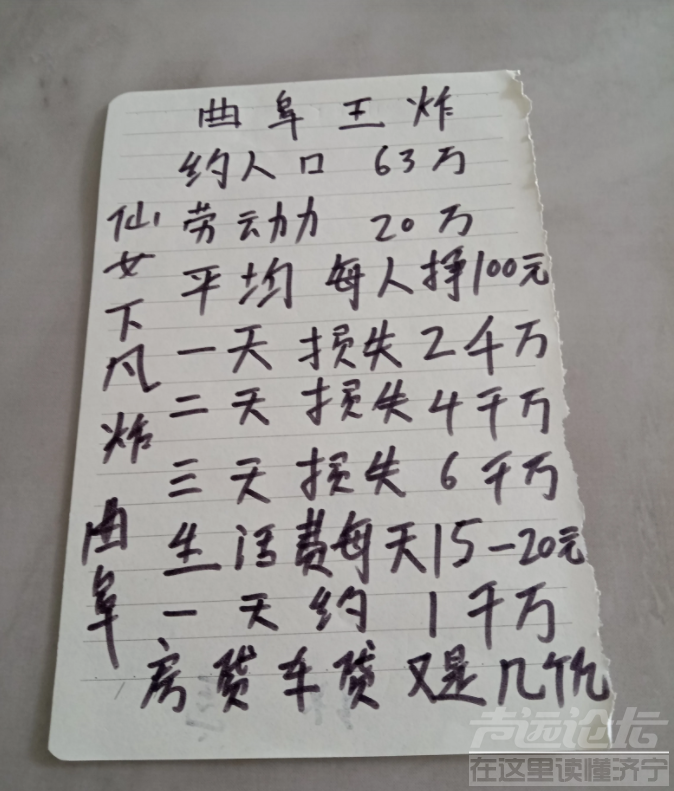 曲阜王炸
约人口 63万
劳动力 20万
平均 每人挣100元
一天 损失2千万
二天 损失4千万
三天 损失6千万
生活费每天15-20元
一天约 1千万
房贷车贷又是几个亿
仙女下凡炸曲阜
声远论坛
在这里读懂济宁